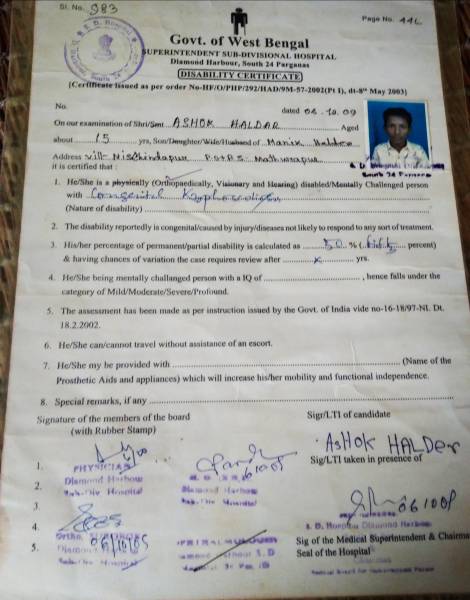 Sl. No. 983
Page No. 44L
Govt. of West Bengal
SUPERINTENDENT SUB-DIVISIONAL HOSPITAL
Diamond Harbour, South 24 Parganas
DISABILITY CERTIFICATE
[Certificate issued as per order No-HF/O/PHP/292/HAD/9M-57-2002(Pt I), dt-8th May 2003]
No.
dated 06.10.09
On our examination of Shri/Smt ASHOK HALDAR Aged
about 15 yrs, Son/Daughter/Wife/Husband of Manik Halder
Address vill- Nischindapur P.O+P.S- Mathurapur
South 24 Parganas
it is certified that :
1. He/She is a physically (Orthopaedically, Visionary and Hearing) disabled/Mentally Challenged person
with Congenital Kyphoscoliosis
(Nature of disability)
2. The disability reportedly is congenital/caused by injury/diseases not likely to respond to any sort of treatment.
3. His/her percentage of permanent/partial disability is calculated as 50 % (fifty percent)
& having chances of variation the case requires review after x yrs.
4. He/She being mentally challanged person with a IQ of , hence falls under the
category of Mild/Moderate/Severe/Profound.
5. The assessment has been made as per instruction issued by the Govt. of India vide no-16-18/97-NI. Dt.
18.2.2002.
6. He/She can/cannot travel without assistance of an escort.
7. He/She my be provided with (Name of the
Prosthetic Aids and appliances) which will increase his/her mobility and functional independence.
8. Special remarks, if any
Signature of the members of the board
(with Rubber Stamp)
Sigr/LTI of candidate
ASHOK HALDER
Sig/LTI taken in presence of
1.
PHYSICIAN
Diamond Harbour
Sub-Div Hospital
Diamond Harbour
Sub-Div Hospital
2.
3.
4.
5.
06/10/09
S. D. Hospital Diamond Harbour
Sig of the Medical Superintendent & Chairma
Seal of the Hospital